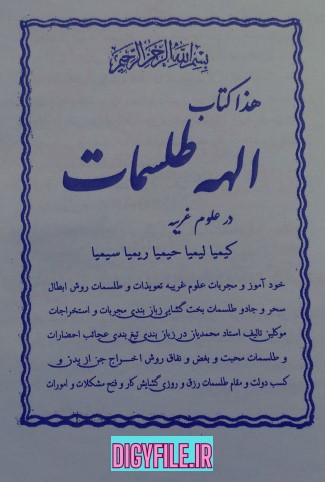 بسم الله الرحمن الرحیم
هذا کتاب
الهه طلسمات
در علوم غریبه
کیمیا لیمیا حیمیا ریمیا سیمیا
خود آموز و مجربات علوم غریبه تعویذات و طلسمات روش ابطال
سحر و جادو طلسمات بخت گشایی زبان بندی مجربات و استخراجات
موکلین تالیف استاد محمدباز در زبان بندی تیغ بندی عجائب احضارات
و طلسمات محبت و بغض و نفاق روش اخراج جن از بدن و
کسب دولت و مقام طلسمات رزق و روزی گشایش کار و فتح مشکلات و امورات
DIGYFILE.IR